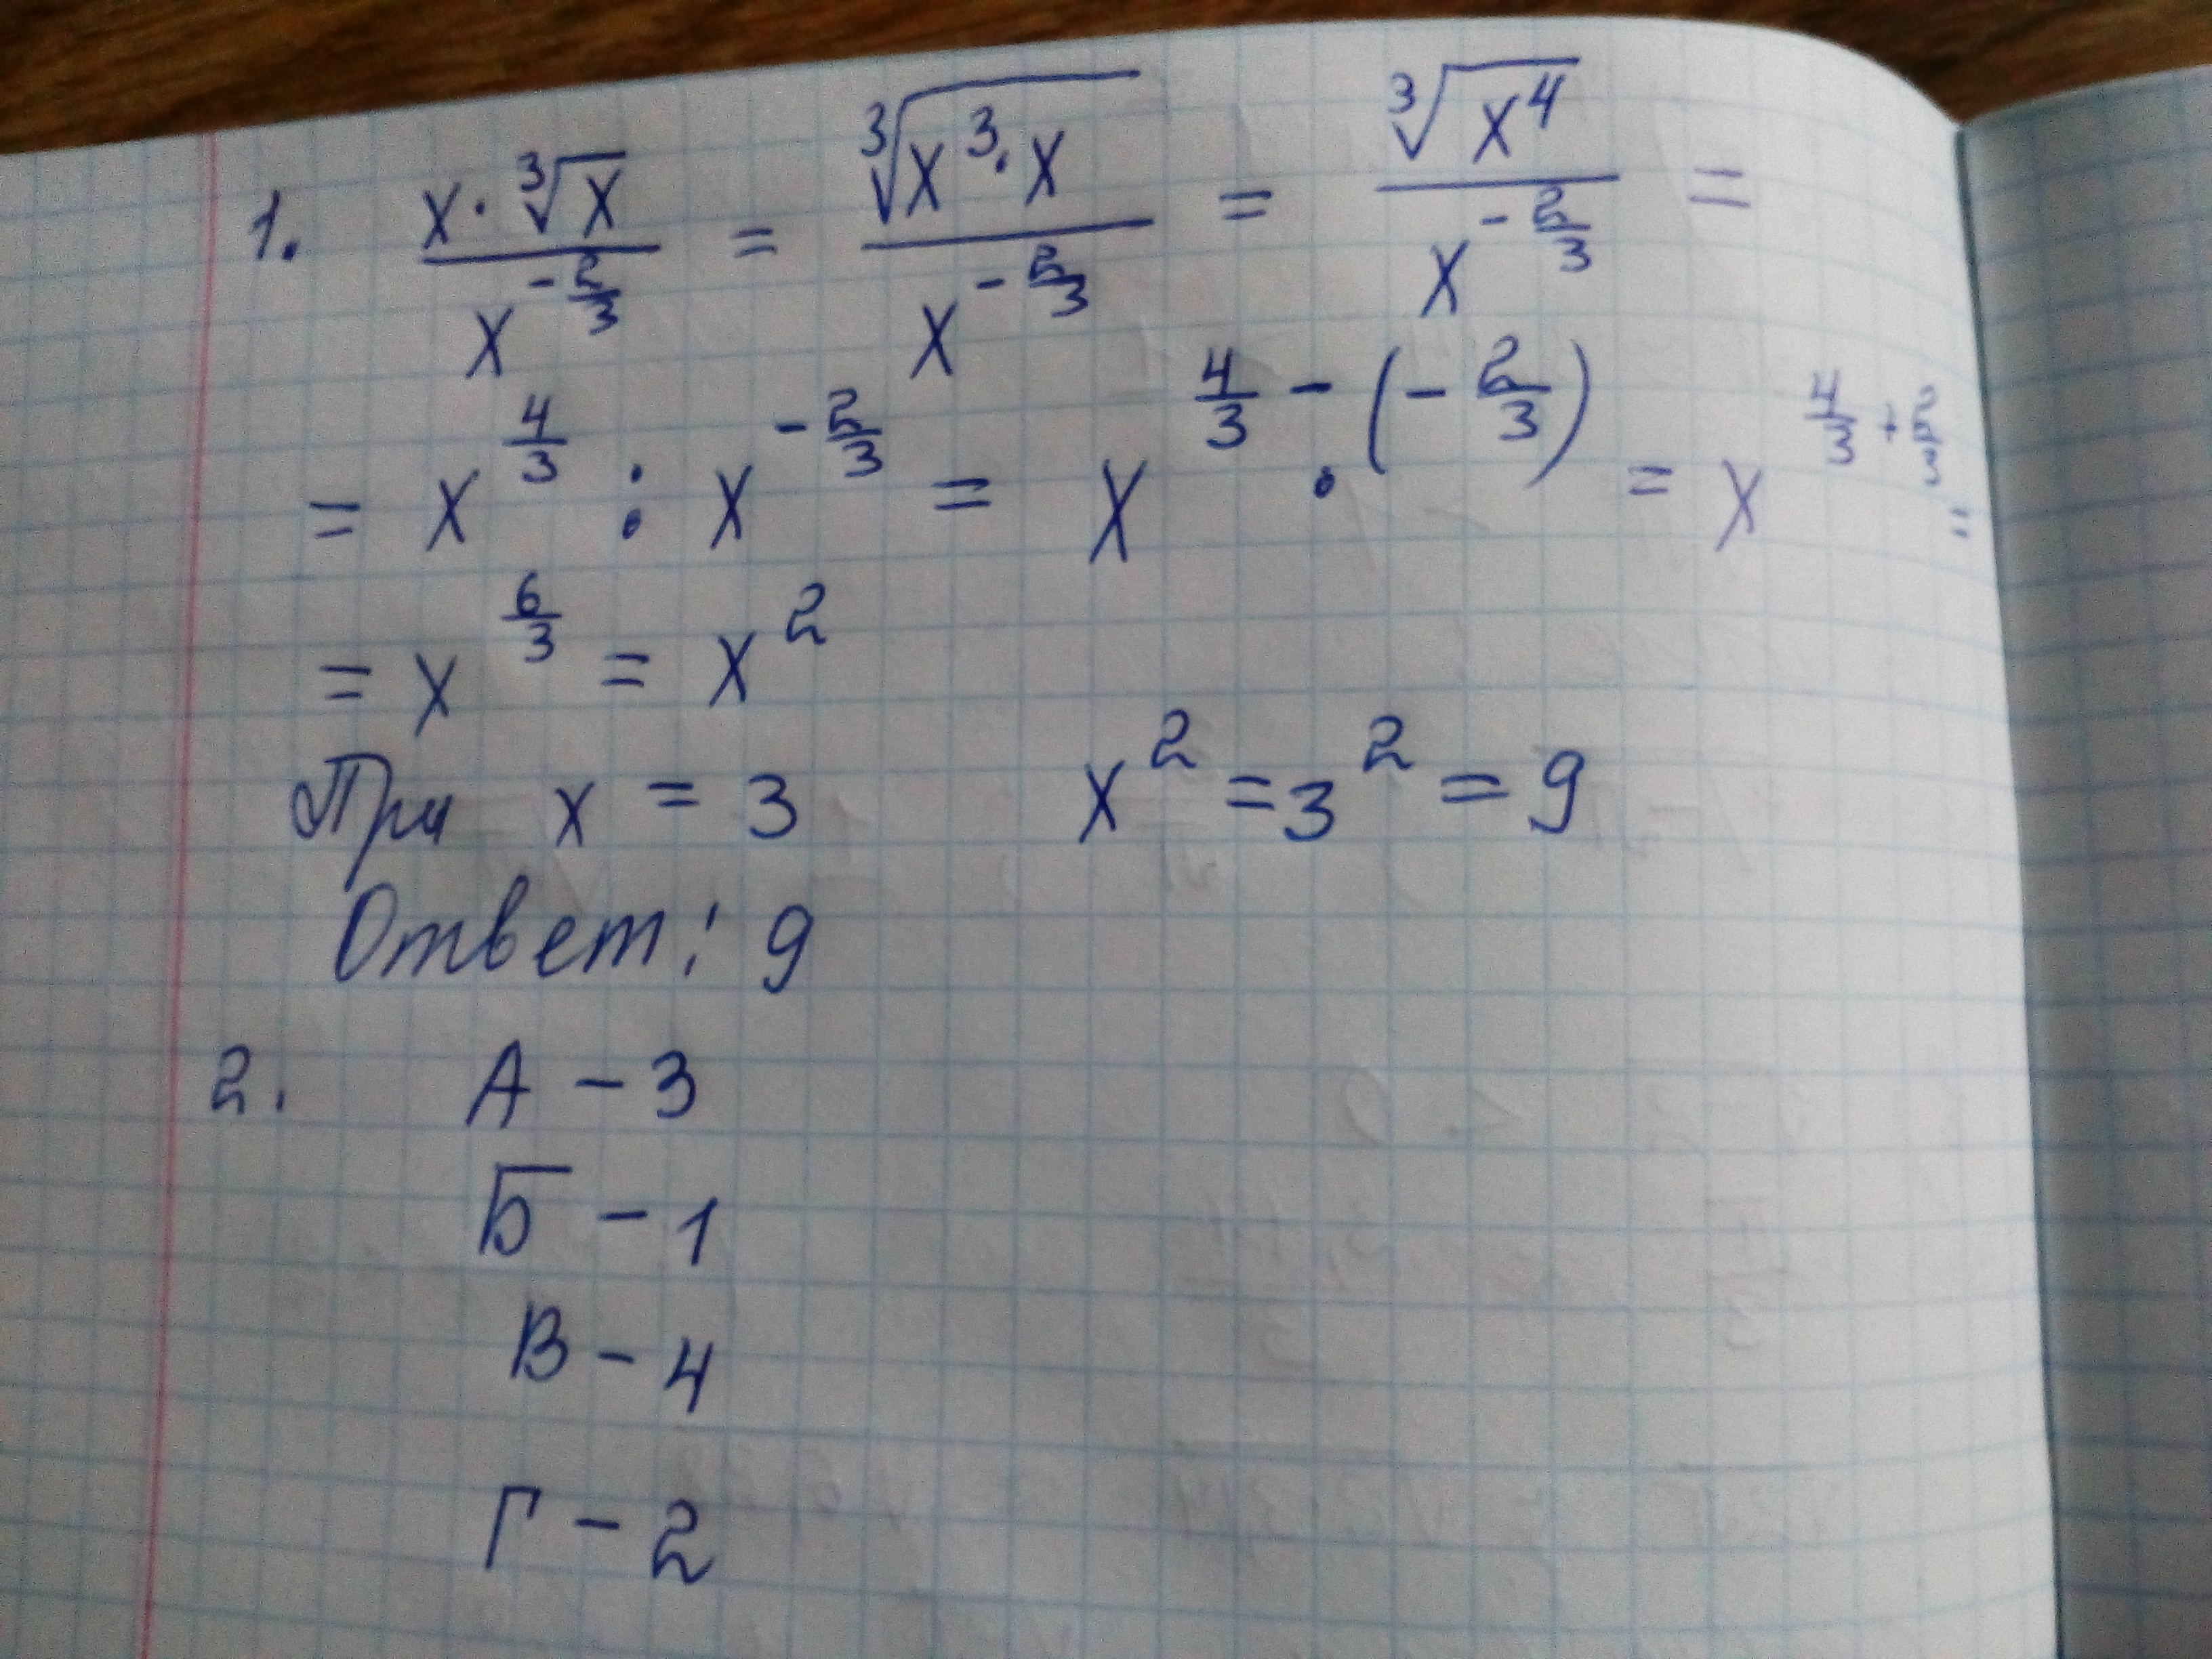 1. (x · ∛x)/(x^(-2/3)) = ∛(x³ · x)/(x^(-2/3)) = ∛(x⁴)/(x^(-2/3)) =
= x^(4/3) : x^(-2/3) = x^(4/3 - (-2/3)) = x^(4/3 + 2/3) =
= x^(6/3) = x²
При x = 3 x² = 3² = 9
Ответ: 9
2. А - 3
Б - 1
В - 4
Г - 2